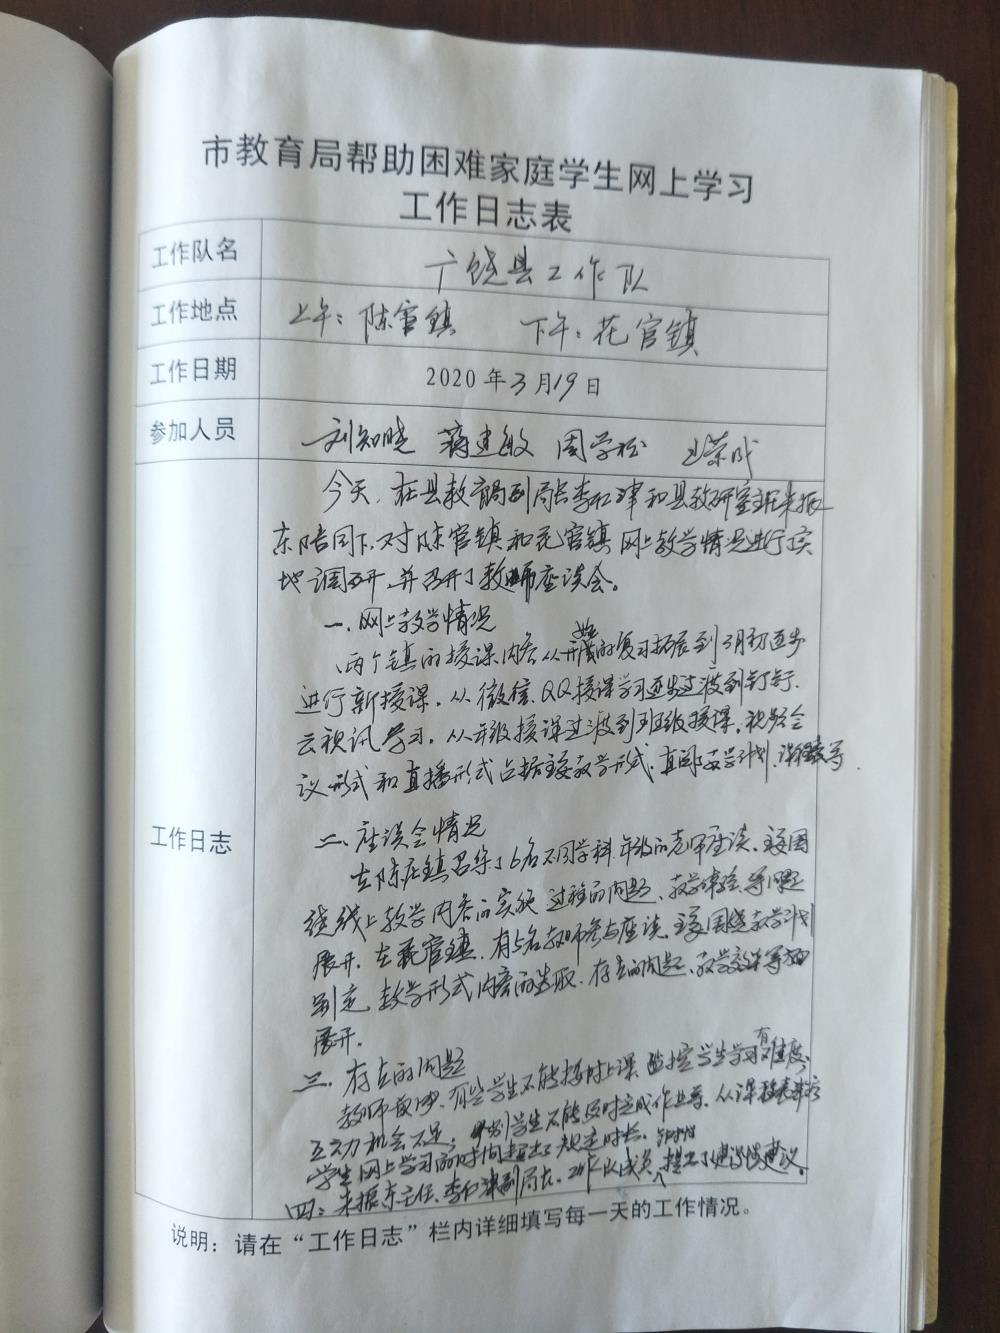 市教育局帮助困难家庭学生网上学习
工作日志表
工作队名 广饶县工作队
工作地点 上午：陈官镇 下午：花官镇
工作日期 2020年3月19日
参加人员 刘知晓 蒋建敏 周学松 王荣成
工作日志
今天，在县教育局副局长李和津和县教研室主任朱振
东陪同下，对陈官镇和花官镇网上教学情况进行实
地调研，并召开了教师座谈会。
一、网上教学情况
两个镇的授课内容从开始的复习拓展到3月初逐步
进行新授课，从微信、QQ授课学习逐步过渡到钉钉、
云视讯学习，从年级授课过渡到班级授课，视频会
议形式和直播形式占据主要教学形式，教学计划、课程表等
二、座谈会情况
在陈官镇召集了6名不同学科、年级的老师座谈，主要围
绕线上教学内容的实施、过程的问题、教学体验等问题
展开，在花官镇，有5名教师参与座谈，主要围绕教学计划
制定、教学形式内容的选取、存在的问题、教学效果等方面
展开。
三、存在的问题
教师反映，有些学生不能按时上课，监控学生学习有难度，
互动机会不足；个别学生不能及时完成作业等，从课程表来看
学生网上学习的时间超出了规定时长，
四、朱振东主任、李和津副局长、工作队成员针对性提出了建设性建议。
说明：请在“工作日志”栏内详细填写每一天的工作情况。